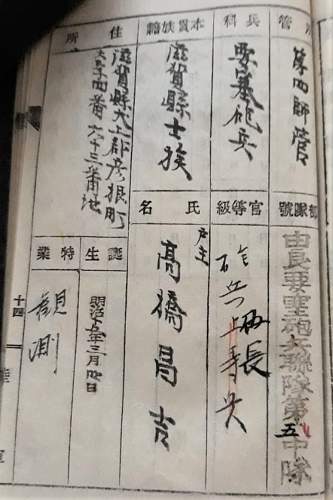 所管
第四師管
兵科
要塞砲兵
本貫族籍
滋賀縣士族
住所
滋賀縣犬上郡彦根町
六十三番地
部隊號
由良要塞砲兵聯隊第五中隊
官等級
砲兵
長
氏名
戸主
高橋昌吉
誕生
明治
年三月
日
特業
観測
十四